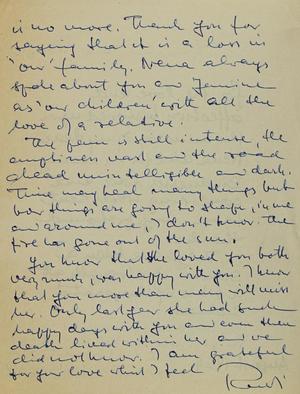 is no more. Thank you for
saying that it is a loss in
'our' family. Nena always
spoke about you and Jemine
as 'our children' with all the
love of a relative.
The pain is still intense, the
emptiness vast and the road
ahead unintelligible and dark.
Time may heal many things but
how things are going to shape, in me
and around me, I don't know. The
fire has gone out of the sun.
You know that she loved you both
very much, was happy with you. I know
that you more than many will miss
her. Only last year she had such
happy days with you and even then
death lived within her and we
did not know. I am grateful
for your love which I feel